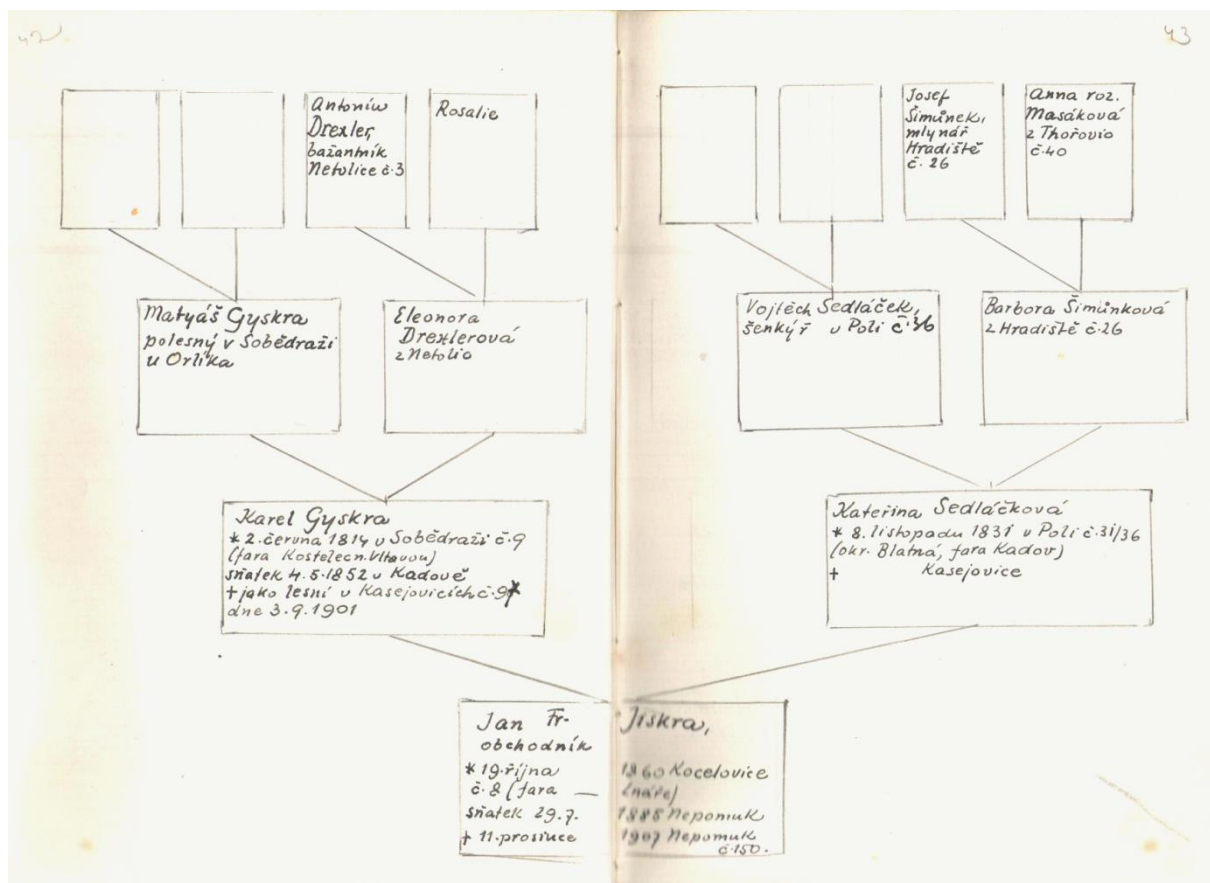 42
43
Antonín
Drexler,
bažantník
Netolice č.3
Rosalie
Josef
Šimůnek,
mlynář
Hradiště
č. 26
Anna roz.
Masáková
z Thořovic
č.40
Matyáš Gyskra
polesný v Sobědraži
u Orlíka
Eleonora
Drexlerová
z Netolic
Vojtěch Sedláček,
šenkýř v Poli č.36
Barbora Šimůnková
z Hradiště č.26
Karel Gyskra
* 2. června 1814 v Sobědraži č.9
(fara Kostelec n. Vltavou)
sňatek 4.5.1852 v Kadově
† jako lesní v Kasejovicích č.97
dne 3.9.1901
Kateřina Sedláčková
* 8. listopadu 1831 v Poli č.31/36
(okr. Blatná, fara Kadov)
† Kasejovice
Jan Fr. Jiskra,
obchodník
* 19. října 1860 Kocelovice
č.8 (fara —
sňatek 29.7. 1885 Nepomuk
† 11. prosince 1907 Nepomuk
č.150.